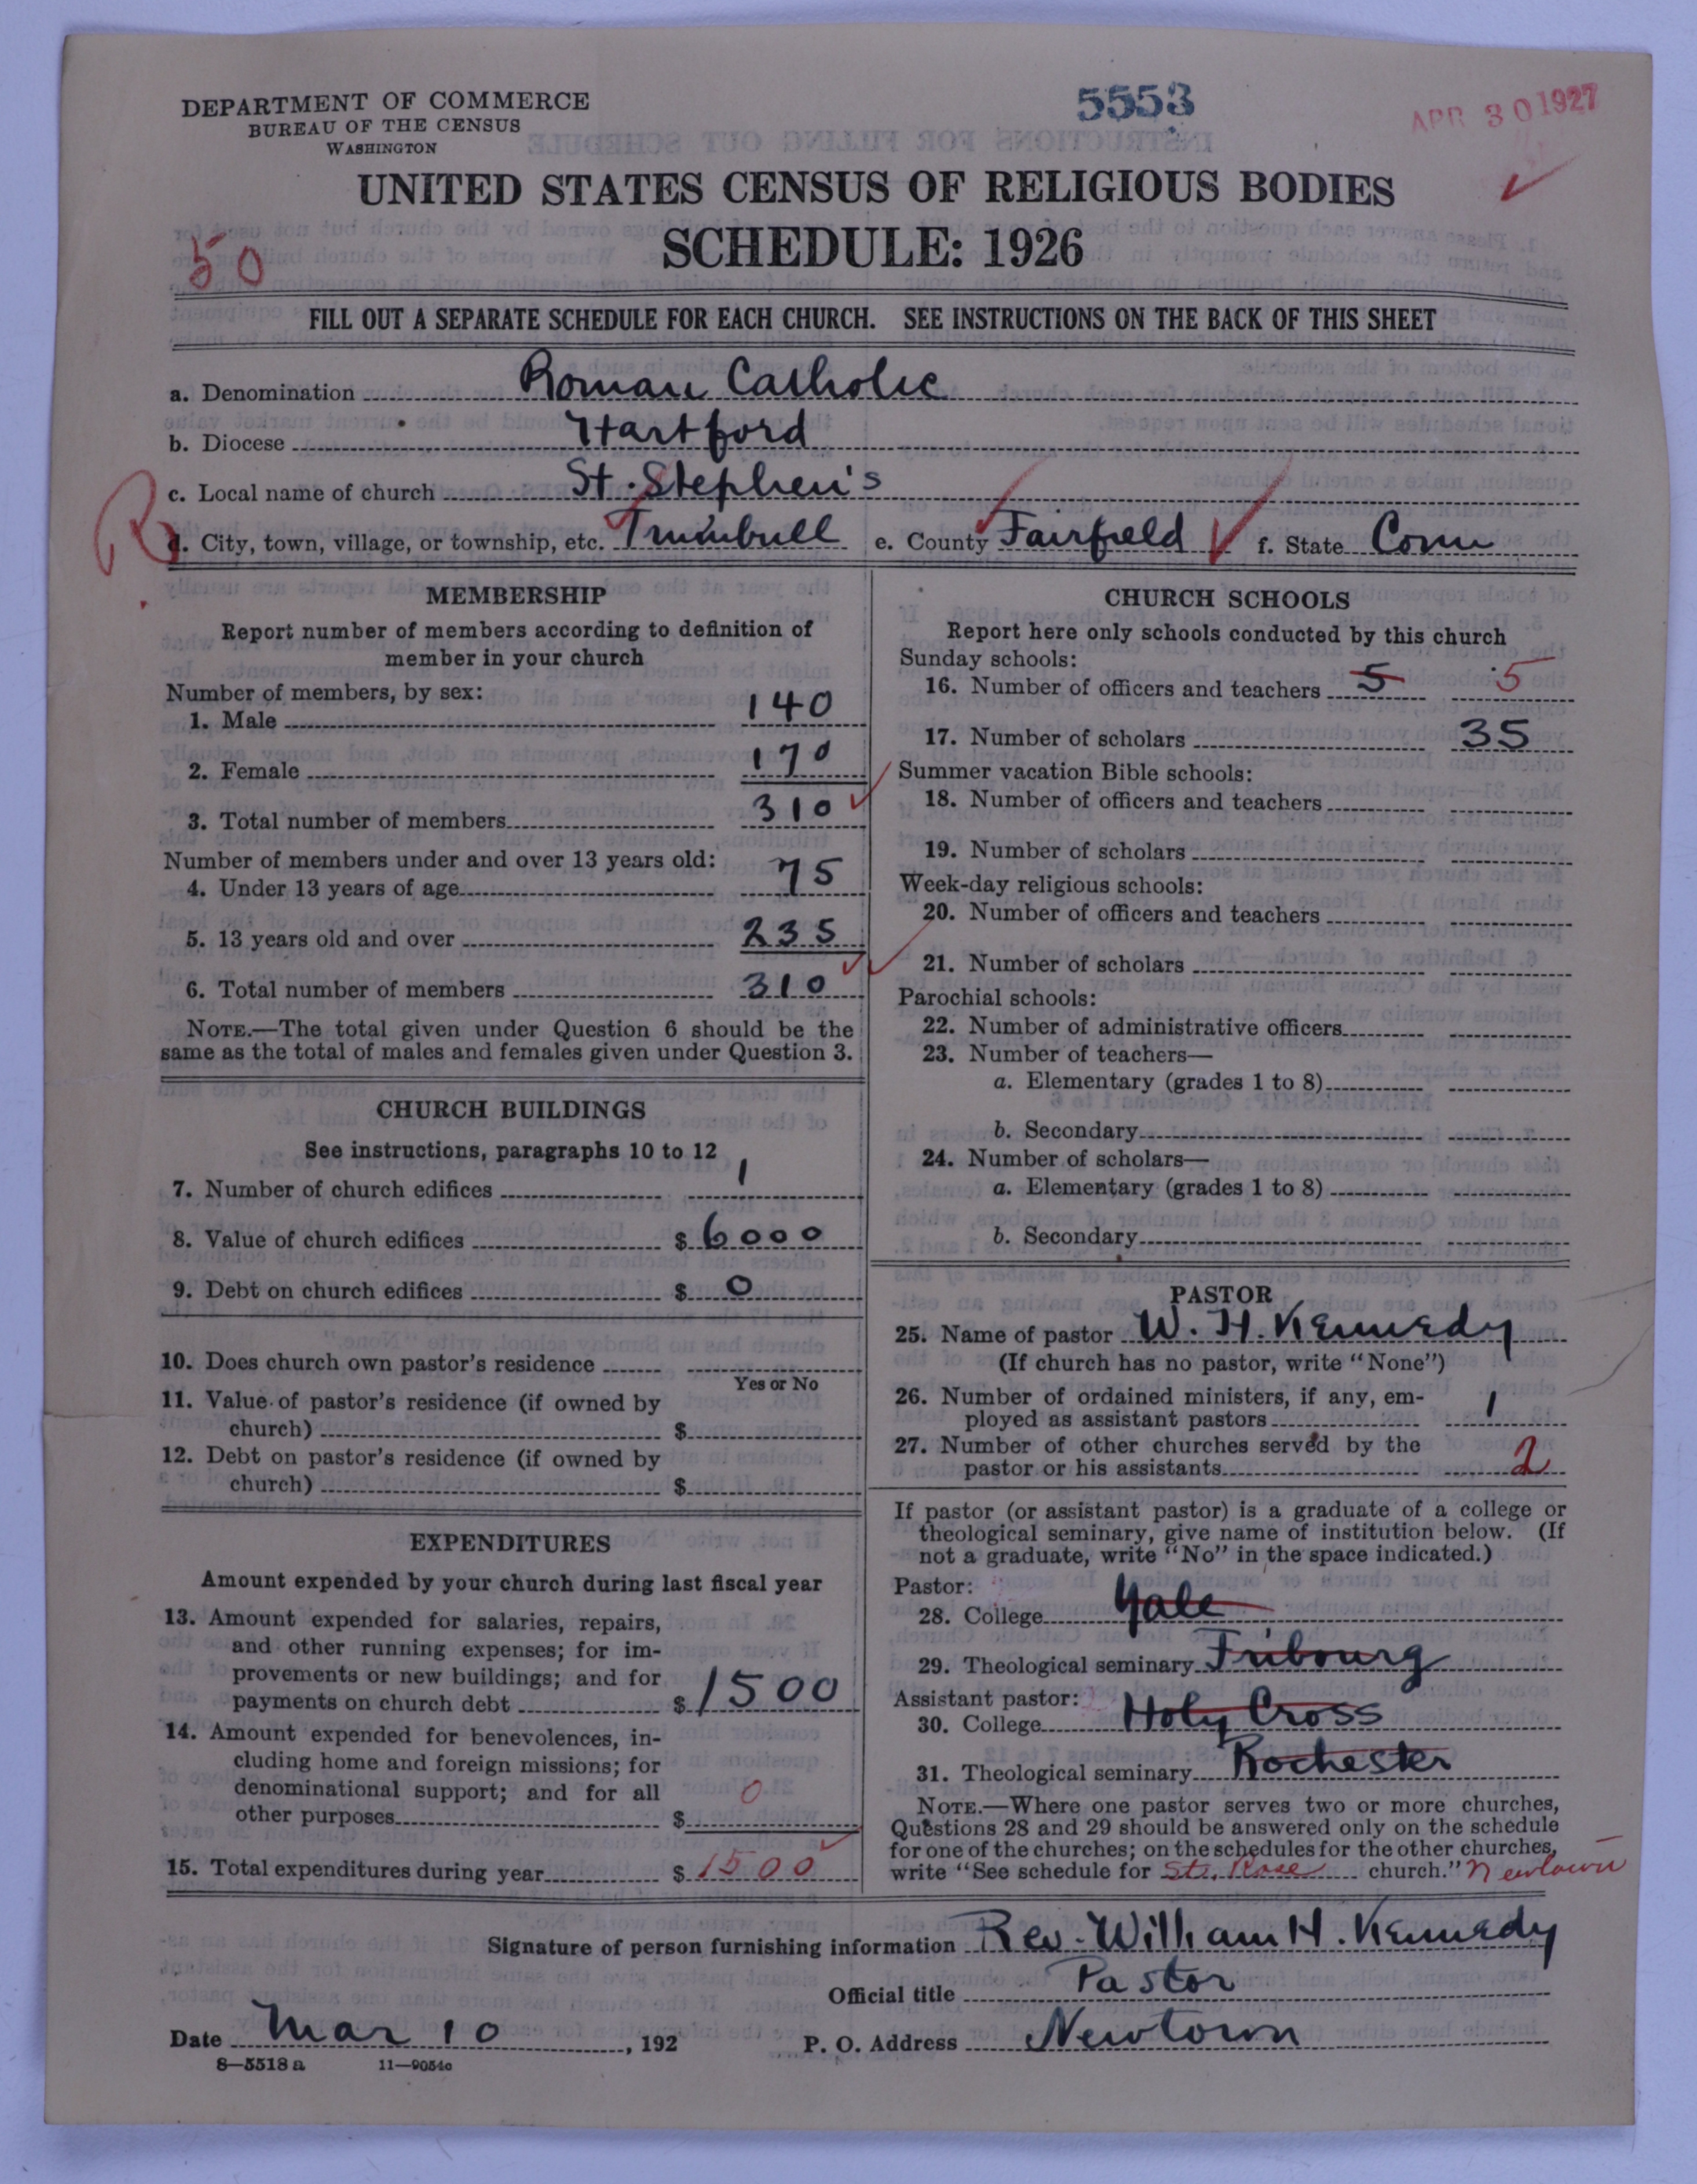 DEPARTMENT OF COMMERCE
BUREAU OF THE CENSUS
WASHINGTON
5553
APR 30 1927
UNITED STATES CENSUS OF RELIGIOUS BODIES
SCHEDULE: 1926
50
FILL OUT A SEPARATE SCHEDULE FOR EACH CHURCH. SEE INSTRUCTIONS ON THE BACK OF THIS SHEET
a. Denomination Roman Catholic
b. Diocese Hartford
c. Local name of church St. Stephen's
R
d. City, town, village, or township, etc. Trumbull e. County Fairfield f. State Conn
MEMBERSHIP
Report number of members according to definition of
member in your church
Number of members, by sex:
1. Male 140
2. Female 170
3. Total number of members 310
Number of members under and over 13 years old:
4. Under 13 years of age 75
5. 13 years old and over 235
6. Total number of members 310
NOTE.—The total given under Question 6 should be the
same as the total of males and females given under Question 3.
CHURCH BUILDINGS
See instructions, paragraphs 10 to 12
7. Number of church edifices 1
8. Value of church edifices $ 6000
9. Debt on church edifices $ 0
10. Does church own pastor's residence
Yes or No
11. Value of pastor's residence (if owned by
church) $
12. Debt on pastor's residence (if owned by
church) $
EXPENDITURES
Amount expended by your church during last fiscal year
13. Amount expended for salaries, repairs,
and other running expenses; for im-
provements or new buildings; and for
payments on church debt $ 1500
14. Amount expended for benevolences, in-
cluding home and foreign missions; for
denominational support; and for all
other purposes $ 0
15. Total expenditures during year $ 1500
CHURCH SCHOOLS
Report here only schools conducted by this church
Sunday schools:
16. Number of officers and teachers 5 5
17. Number of scholars 35
Summer vacation Bible schools:
18. Number of officers and teachers
19. Number of scholars
Week-day religious schools:
20. Number of officers and teachers
21. Number of scholars
Parochial schools:
22. Number of administrative officers
23. Number of teachers—
a. Elementary (grades 1 to 8)
b. Secondary
24. Number of scholars—
a. Elementary (grades 1 to 8)
b. Secondary
PASTOR
25. Name of pastor W. H. Kennedy
(If church has no pastor, write "None")
26. Number of ordained ministers, if any, em-
ployed as assistant pastors 1
27. Number of other churches served by the
pastor or his assistants 2
If pastor (or assistant pastor) is a graduate of a college or
theological seminary, give name of institution below. (If
not a graduate, write "No" in the space indicated.)
Pastor:
28. College Yale
29. Theological seminary Fribourg
Assistant pastor:
30. College Holy Cross
31. Theological seminary Rochester
NOTE.—Where one pastor serves two or more churches,
Questions 28 and 29 should be answered only on the schedule
for one of the churches; on the schedules for the other churches,
write "See schedule for St. Rose church." Newtown
Signature of person furnishing information Rev. William H. Kennedy
Official title Pastor
Date Mar 10, 192 P. O. Address Newtown
8—5518 a 11—9054c